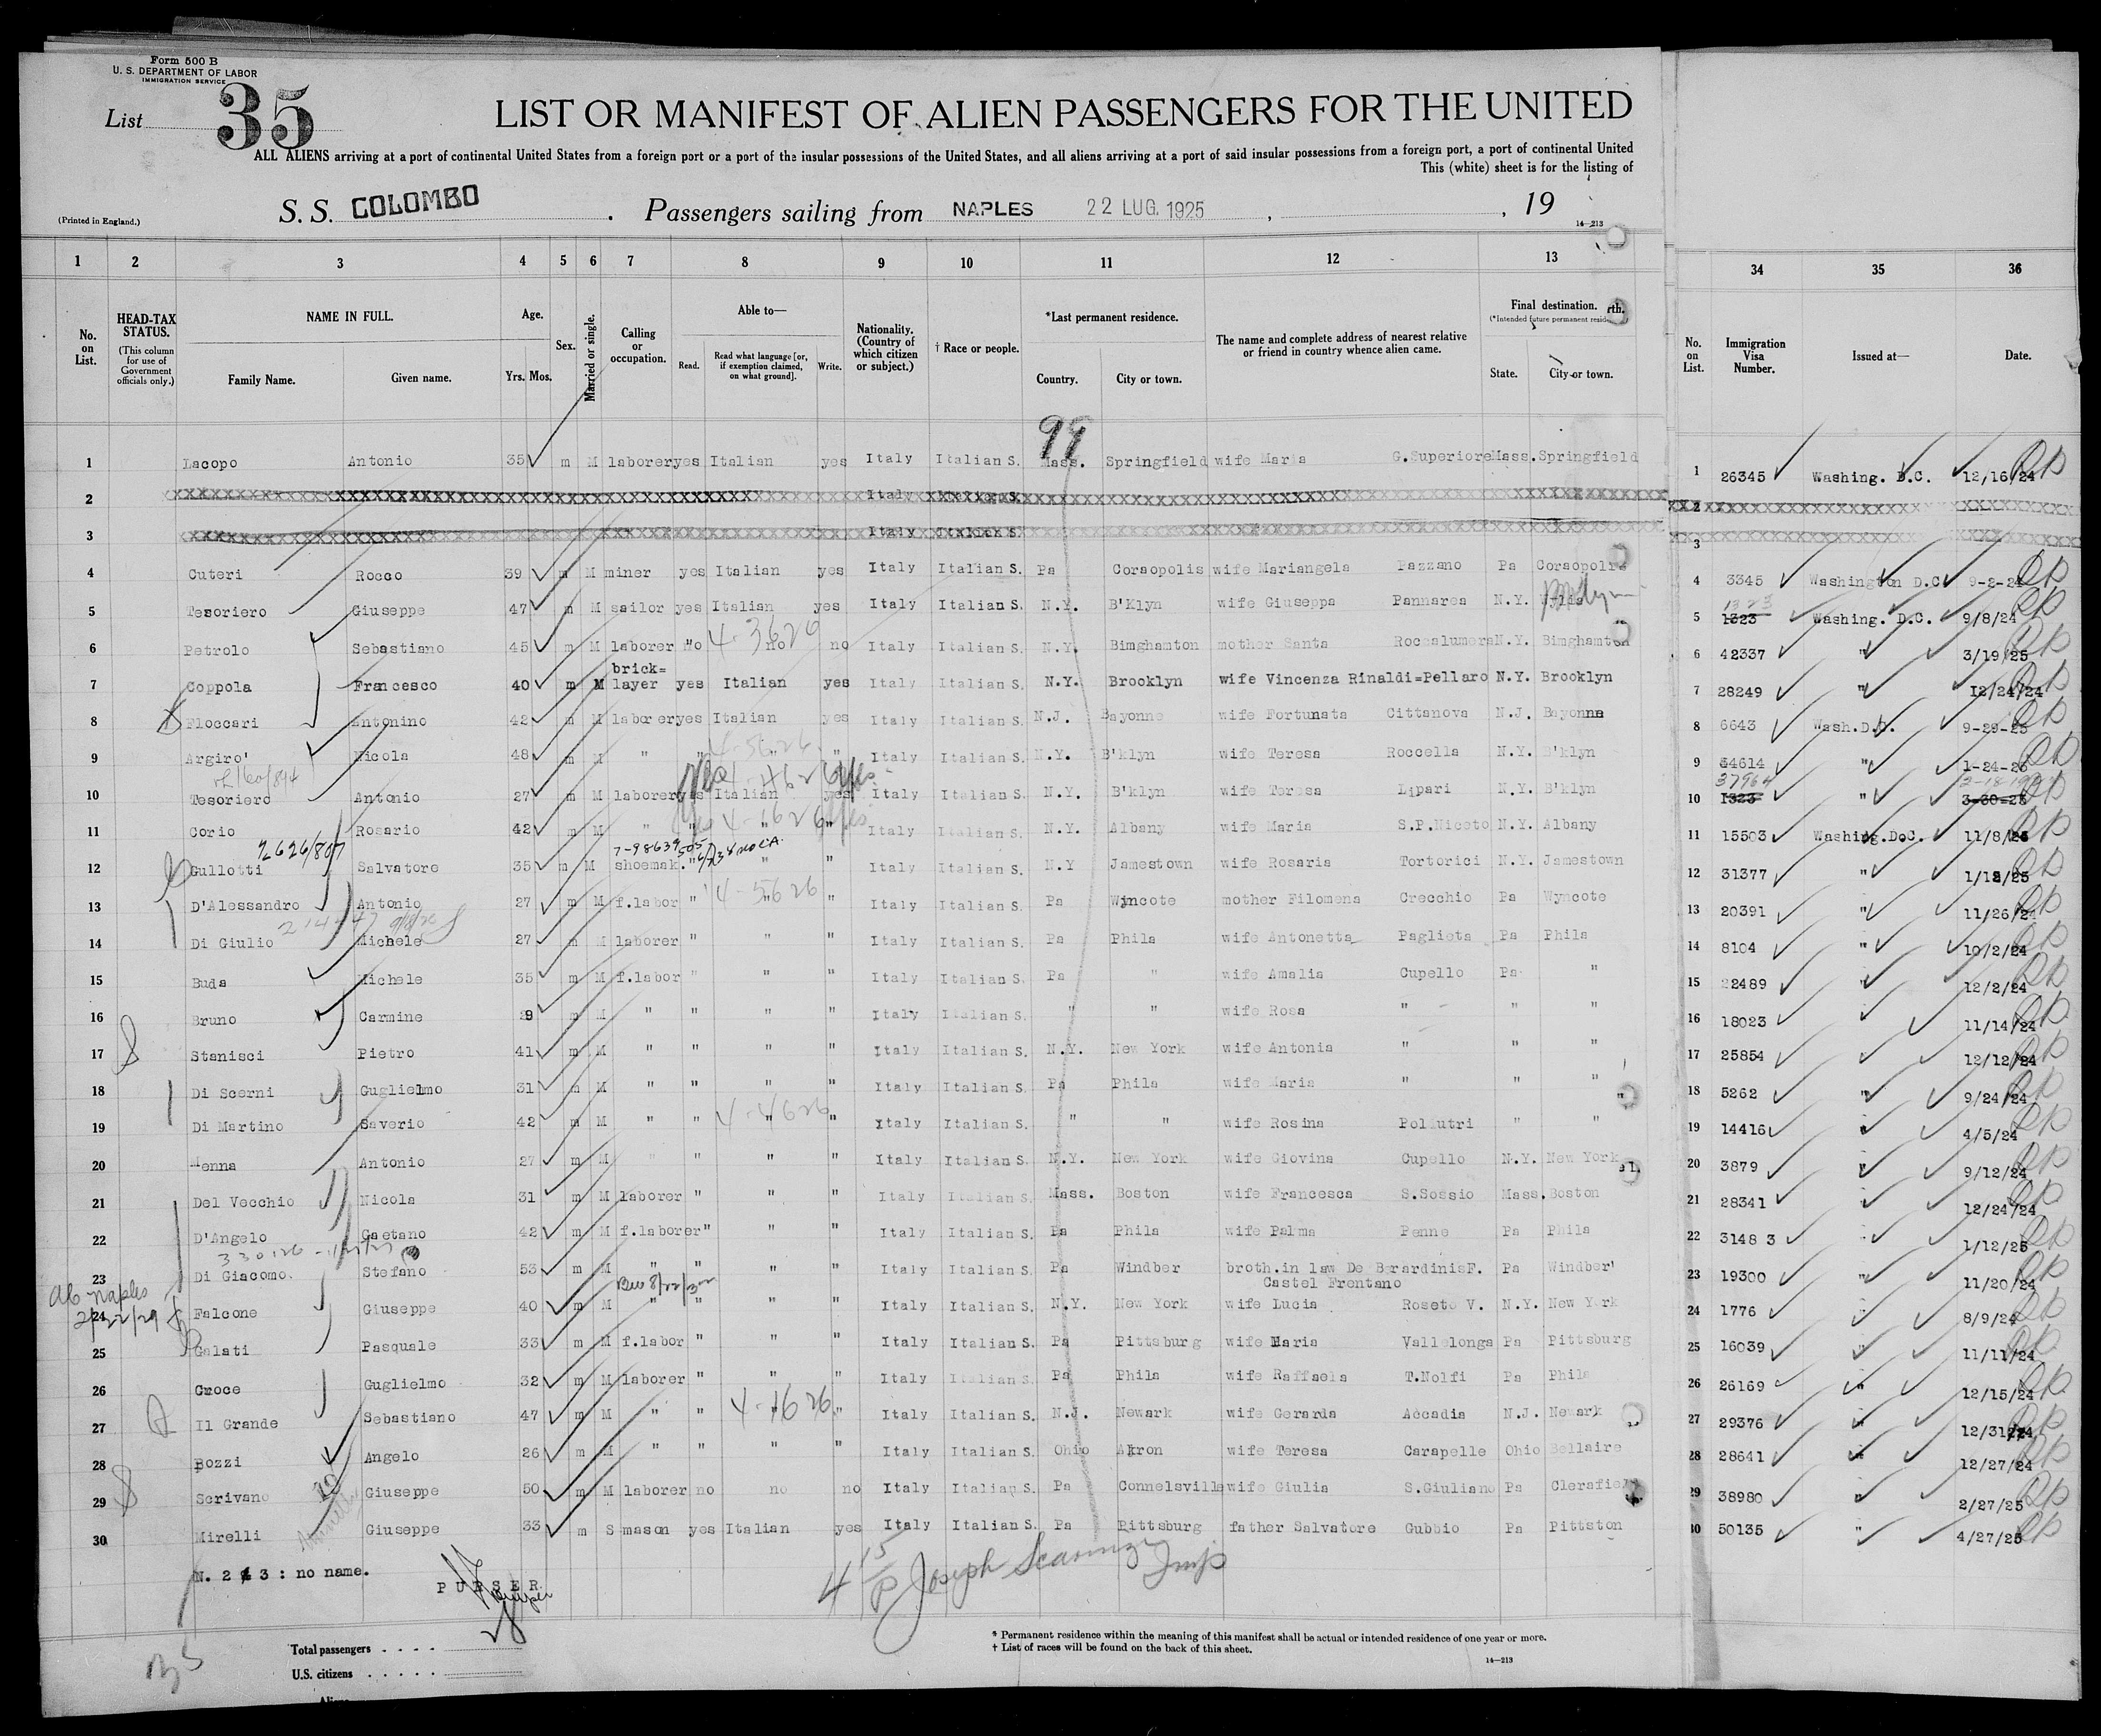 Form 500 B
U. S. DEPARTMENT OF LABOR
IMMIGRATION SERVICE
List 35
LIST OR MANIFEST OF ALIEN PASSENGERS FOR THE UNITED
ALL ALIENS arriving at a port of continental United States from a foreign port or a port of the insular possessions of the United States, and all aliens arriving at a port of said insular possessions from a foreign port, a port of continental United
This (white) sheet is for the listing of
(Printed in England.) S. S. COLOMBO . Passengers sailing from NAPLES 22 LUG. 1925 , , 19
14—213
1 2 3 4 5 6 7 8 9 10 11 12 13 34 35 36
No. on List. HEAD-TAX STATUS. (This column for use of Government officials only.) NAME IN FULL. Family Name. Given name. Age. Yrs. Mos. Sex. Married or single. Calling or occupation. Able to— Read. Read what language [or, if exemption claimed, on what ground]. Write. Nationality. (Country of which citizen or subject.) † Race or people. *Last permanent residence. Country. City or town. The name and complete address of nearest relative or friend in country whence alien came. Final destination. (*Intended future permanent reside rth. State. City or town. No. on List. Immigration Visa Number. Issued at— Date.
99
1 Lacopo Antonio 35 m M laborer yes Italian yes Italy Italian S. Mass. Springfield wife Maria G.Superiore Mass. Springfield 1 26345 Washing. D.C. 12/16/24
2 Italy Italian S. 2
3 Italy Italian S. 3
4 Cuteri Rocco 39 m M miner yes Italian yes Italy Italian S. Pa Coraopolis wife Mariangela Pazzano Pa Coraopolis 4 3345 Washington D.C. 9-2-24
5 Tesoriero Giuseppe 47 m M sailor yes Italian yes Italy Italian S. N.Y. B'Klyn wife Giuseppa Pannarea N.Y. 5 1323 1323 Washing. D.C. 9/8/24
6 Petrolo Sebastiano 45 m M laborer no no no Italy Italian S. N.Y. Bimghamton mother Santa Roccalumera N.Y. Bimghamton 6 42337 " 3/19/25
7 Coppola Francesco 40 m M brick=layer yes Italian yes Italy Italian S. N.Y. Brooklyn wife Vincenza Rinaldi=Pellaro N.Y. Brooklyn 7 28249 " 12/24/24
8 Floccari Antonino 42 m M laborer yes Italian yes Italy Italian S. N.J. Bayonne wife Fortunata Cittanova N.J. Bayonne 8 6643 Wash.D.C. 9-29-25
9 Argiro' Nicola 48 m M " " " " Italy Italian S. N.Y. B'klyn wife Teresa Roccella N.Y. B'klyn 9 34614 " 1-24-25
10 Tesoriero Antonio 27 m M laborer yes Italian yes Italy Italian S. N.Y. B'klyn wife Teresa Lipari N.Y. B'klyn 10 37964 1323 " 3-30-25
11 Corio Rosario 42 m M " " " " Italy Italian S. N.Y. Albany wife Maria S.P.Niceto N.Y. Albany 11 15503 Washing.D.C. 11/8/25
12 Gullotti Salvatore 35 m M shoemak. " " " Italy Italian S. N.Y Jamestown wife Rosaria Tortorici N.Y. Jamestown 12 31377 " 1/12/25
13 D'Alessandro Antonio 27 m M f.labor " " " Italy Italian S. Pa Wyncote mother Filomena Crecchio Pa Wyncote 13 20391 " 11/26/24
14 Di Giulio Michele 27 m M laborer " " " Italy Italian S. Pa Phila wife Antonetta Paglieta Pa Phila 14 8104 " 10/2/24
15 Buda Michele 35 m M f.labor " " " Italy Italian S. Pa " wife Amalia Cupello Pa " 15 22489 " 12/2/24
16 Bruno Carmine 29 m M " " " " Italy Italian S. " " wife Rosa " " " 16 18023 11/14/24
17 Stanisci Pietro 41 m M " " " " Italy Italian S. N.Y. New York wife Antonia " " " 17 25854 12/12/24
18 Di Scerni Guglielmo 31 m M " " " " Italy Italian S. Pa Phila wife Maria " " " 18 5262 " 9/24/24
19 Di Martino Saverio 42 m M " " " " Italy Italian S. " " wife Rosina Pollutri " " 19 14416 " 4/5/24
20 Menna Antonio 27 m M " " " " Italy Italian S. N.Y. New York wife Giovina Cupello N.Y. New York 20 3879 " 9/12/24
21 Del Vecchio Nicola 31 m M laborer " " " Italy Italian S. Mass. Boston wife Francesca S.Sossio Mass. Boston 21 28341 " 12/24/24
22 D'Angelo Gaetano 42 m M f.laborer " " " Italy Italian S. Pa Phila wife Palma Penne Pa Phila 22 3148 3 " 1/12/25
23 Di Giacomo. Stefano 53 m M " " " " Italy Italian S. Pa Windber broth.in law De Berardinis F. Castel Frentano Pa Windber' 23 19300 " 11/20/24
24 Falcone Giuseppe 40 m M " " " " Italy Italian S. N.Y. New York wife Lucia Roseto V. N.Y. New York 24 1776 " 8/9/24
25 Galati Pasquale 33 m M f.labor " " " Italy Italian S. Pa Pittsburg wife Maria Vallelonga Pa Pittsburg 25 16039 " 11/11/24
26 Croce Guglielmo 32 m M laborer " " " Italy Italian S. Pa Phila wife Raffaela T.Nolfi Pa Phila 26 26169 " 12/15/24
27 Il Grande Sebastiano 47 m M " " " " Italy Italian S. N.J. Newark wife Gerarda Accadia N.J. Newark 27 29376 " 12/31/24
28 Bozzi Angelo 26 m M " " " " Italy Italian S. Ohio Akron wife Teresa Carapelle Ohio Bellaire 28 28641 " 12/27/24
29 Scrivano Giuseppe 50 m M laborer no no no Italy Italian S. Pa Connelsville wife Giulia S.Giuliano Pa Clerafield 29 38980 " 2/27/25
30 Mirelli Giuseppe 33 m S mason yes Italian yes Italy Italian S. Pa Pittsburg father Salvatore Gubbio Pa Pittston 30 50135 " 4/27/25
N. 2 & 3 : no name.
PURSER
Joseph Scarinzi Insp
Total passengers . . . .
U.S. citizens . . . . .
* Permanent residence within the meaning of this manifest shall be actual or intended residence of one year or more.
† List of races will be found on the back of this sheet.
14—213